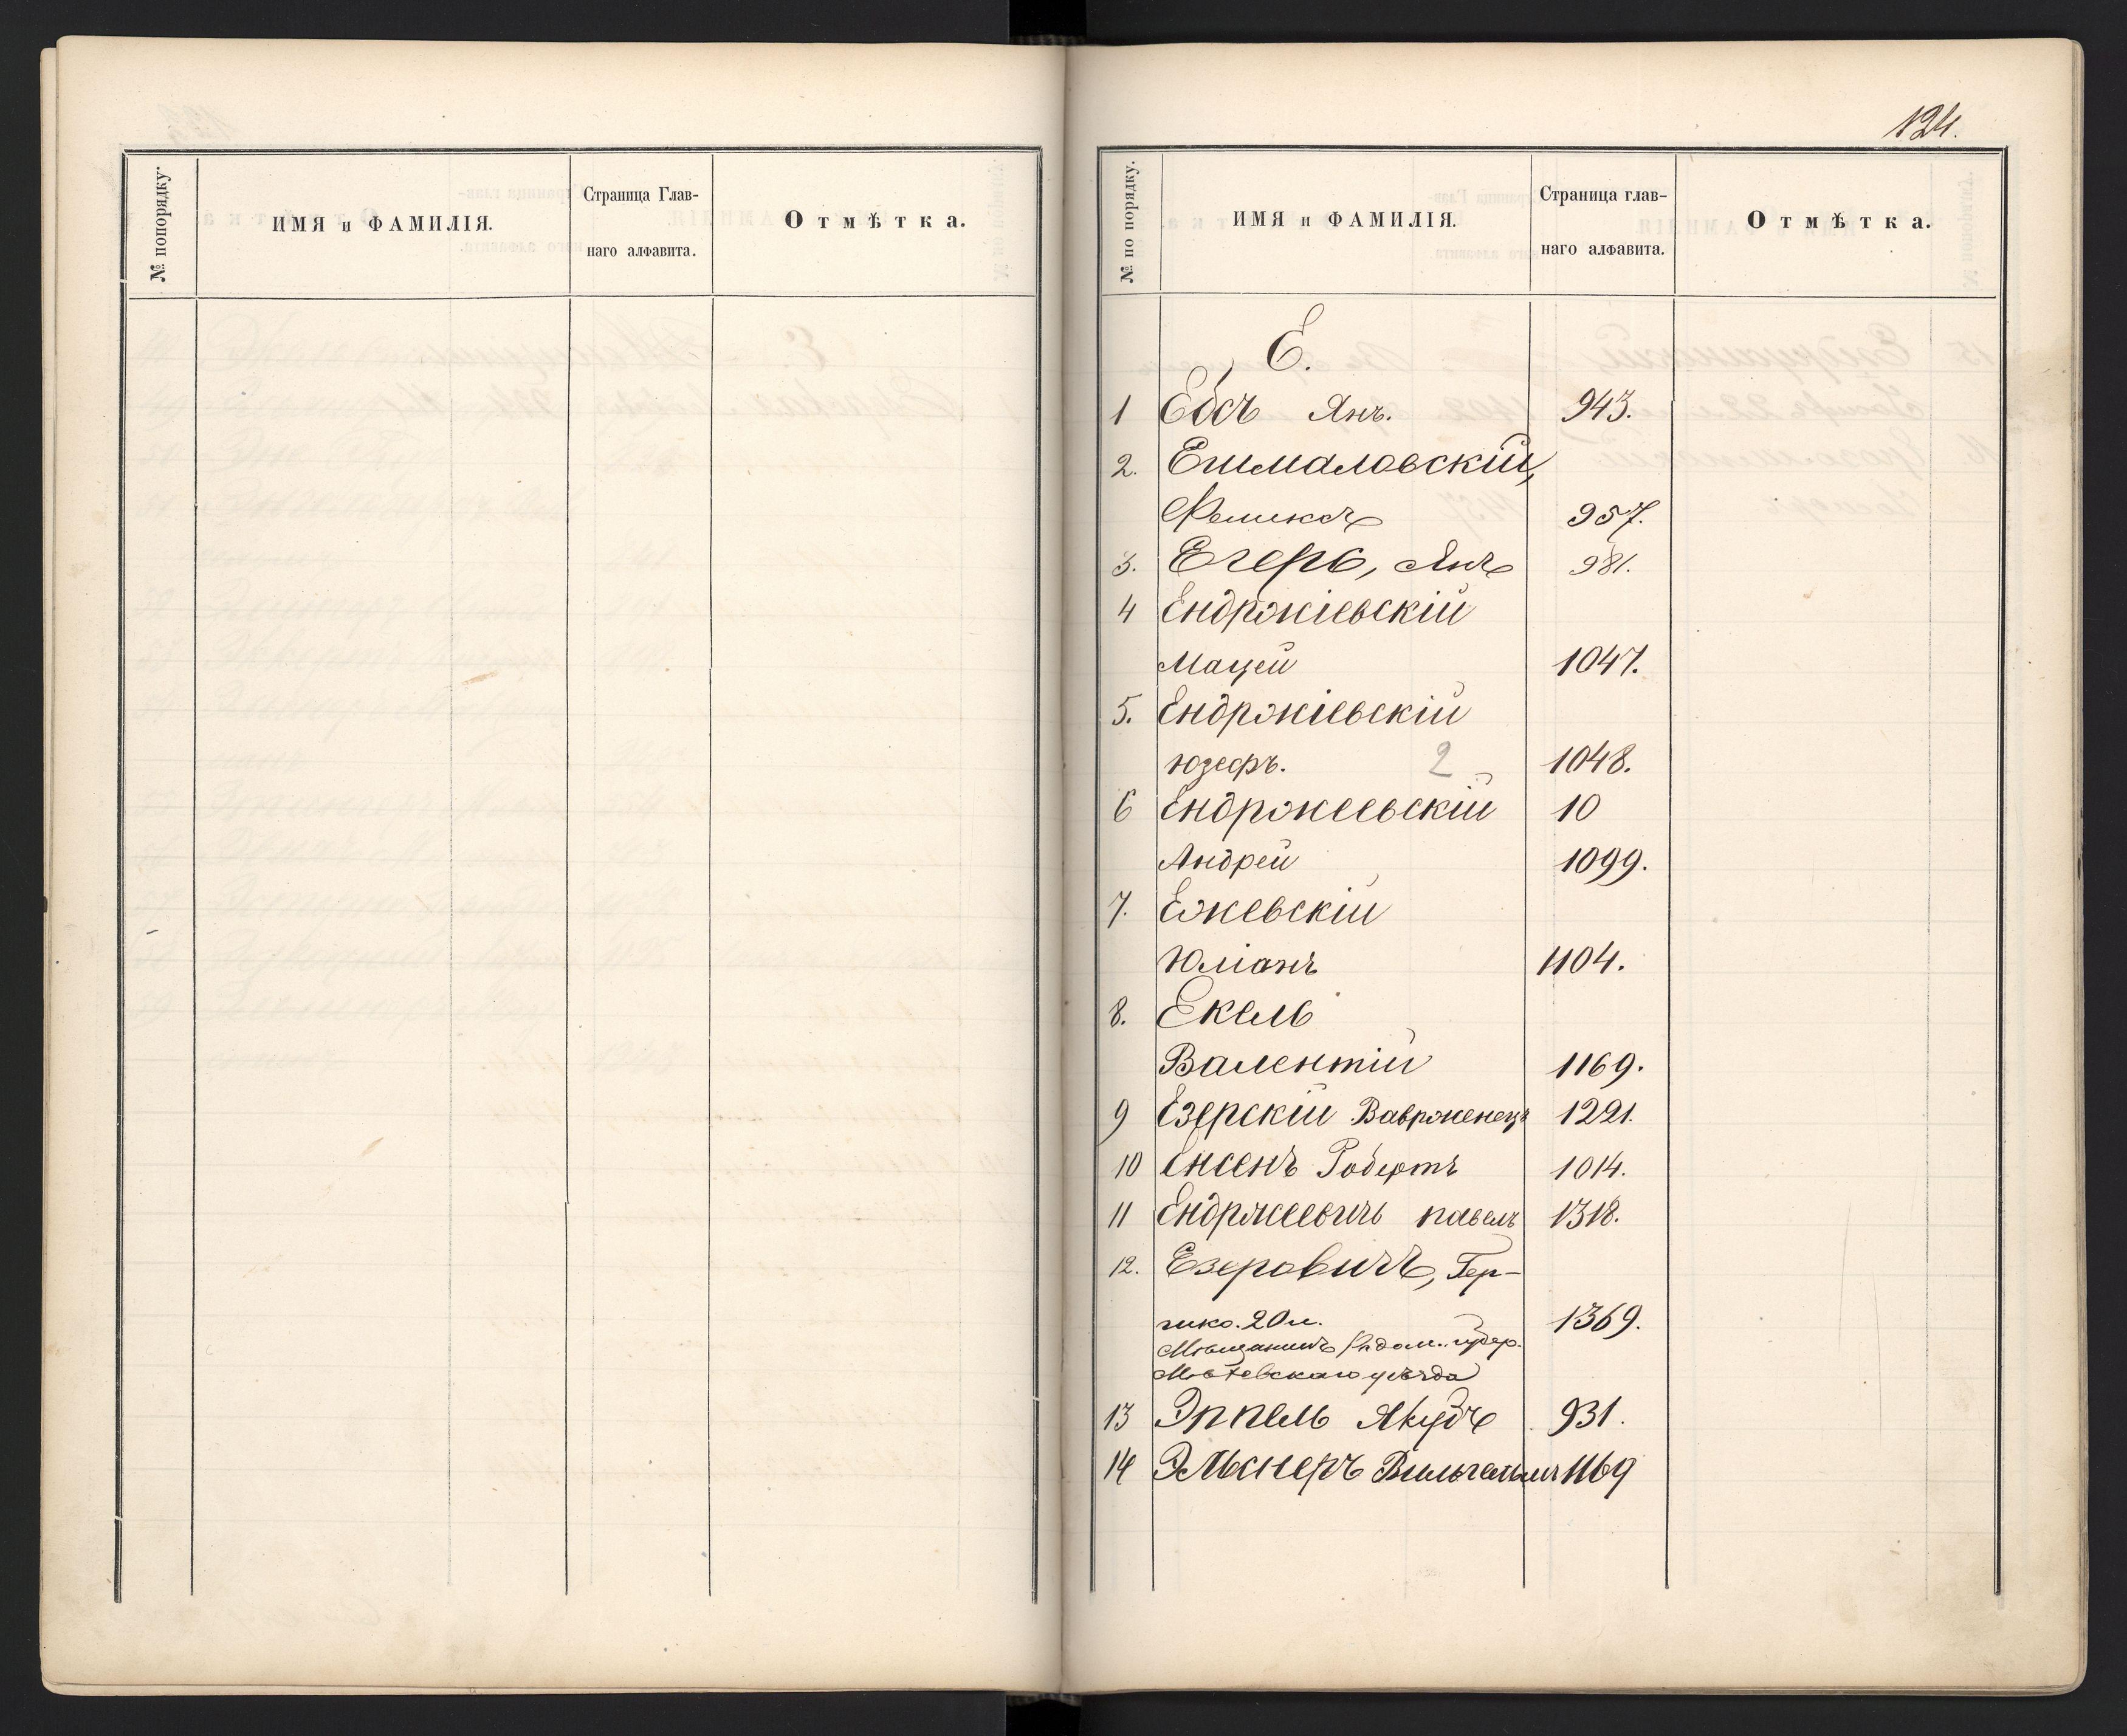 № попорядку.
ИМЯ и ФАМИЛІЯ.
Страница Глав-
наго алфавита.
Отмѣтка.
124.
№ по порядку.
ИМЯ и ФАМИЛІЯ.
Страница глав-
наго алфавита.
Отмѣтка.
Е.
1 Ебсъ Янъ. 943.
2. Ешмаловскій,
Феликсъ 957.
3. Егеръ, Янъ 981.
4 Ендржіевскій
Мацей 1047.
5. Ендржіевскій
Юзефъ. 2 1048.
6 Ендржеевскій 10
Андрей 1099.
7. Ежевскій
Юліанъ 1104.
8. Екель
Валентій 1169.
9 Езерскій Ваврженецъ 1221.
10 Енсенъ Робертъ 1014.
11 Ендржеевичъ Павелъ 1318.
12. Езеровичъ, Гер-
20 л. 1369.
Мѣщанинъ Радом. губер.
уѣзда
13 Эппель Якубъ 931.
14 Эльснеръ Вильгельмъ 1169